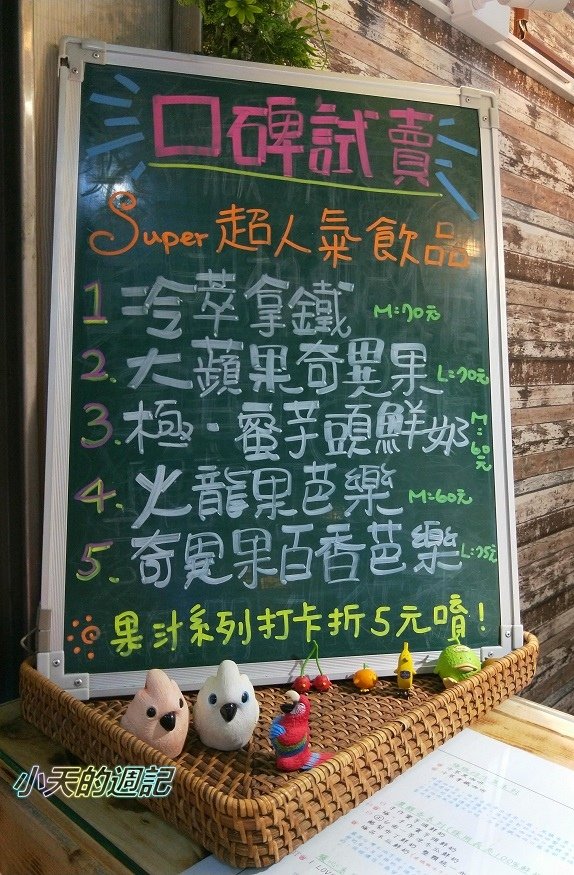 口碑試賣
Super 超人氣飲品
1 冷萃拿鐵 M=70元
2. 大蘋果奇異果 L=70元
3. 極·蜜芋頭鮮奶 M=60元
4. 火龍果芭樂 M=60元
5. 奇異果百香芭樂 L=75元
果汁系列打卡折5元唷!
小天的週記